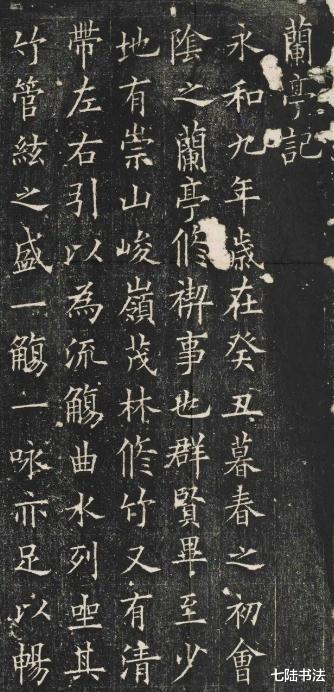 蘭亭記
永和九年歲在癸丑暮春之初會
陰之蘭亭修禊事也群賢畢至少
地有崇山峻嶺茂林修竹又有清
帶左右引以為流觴曲水列坐其
竹管絃之盛一觴一咏亦足以暢
七陆书法